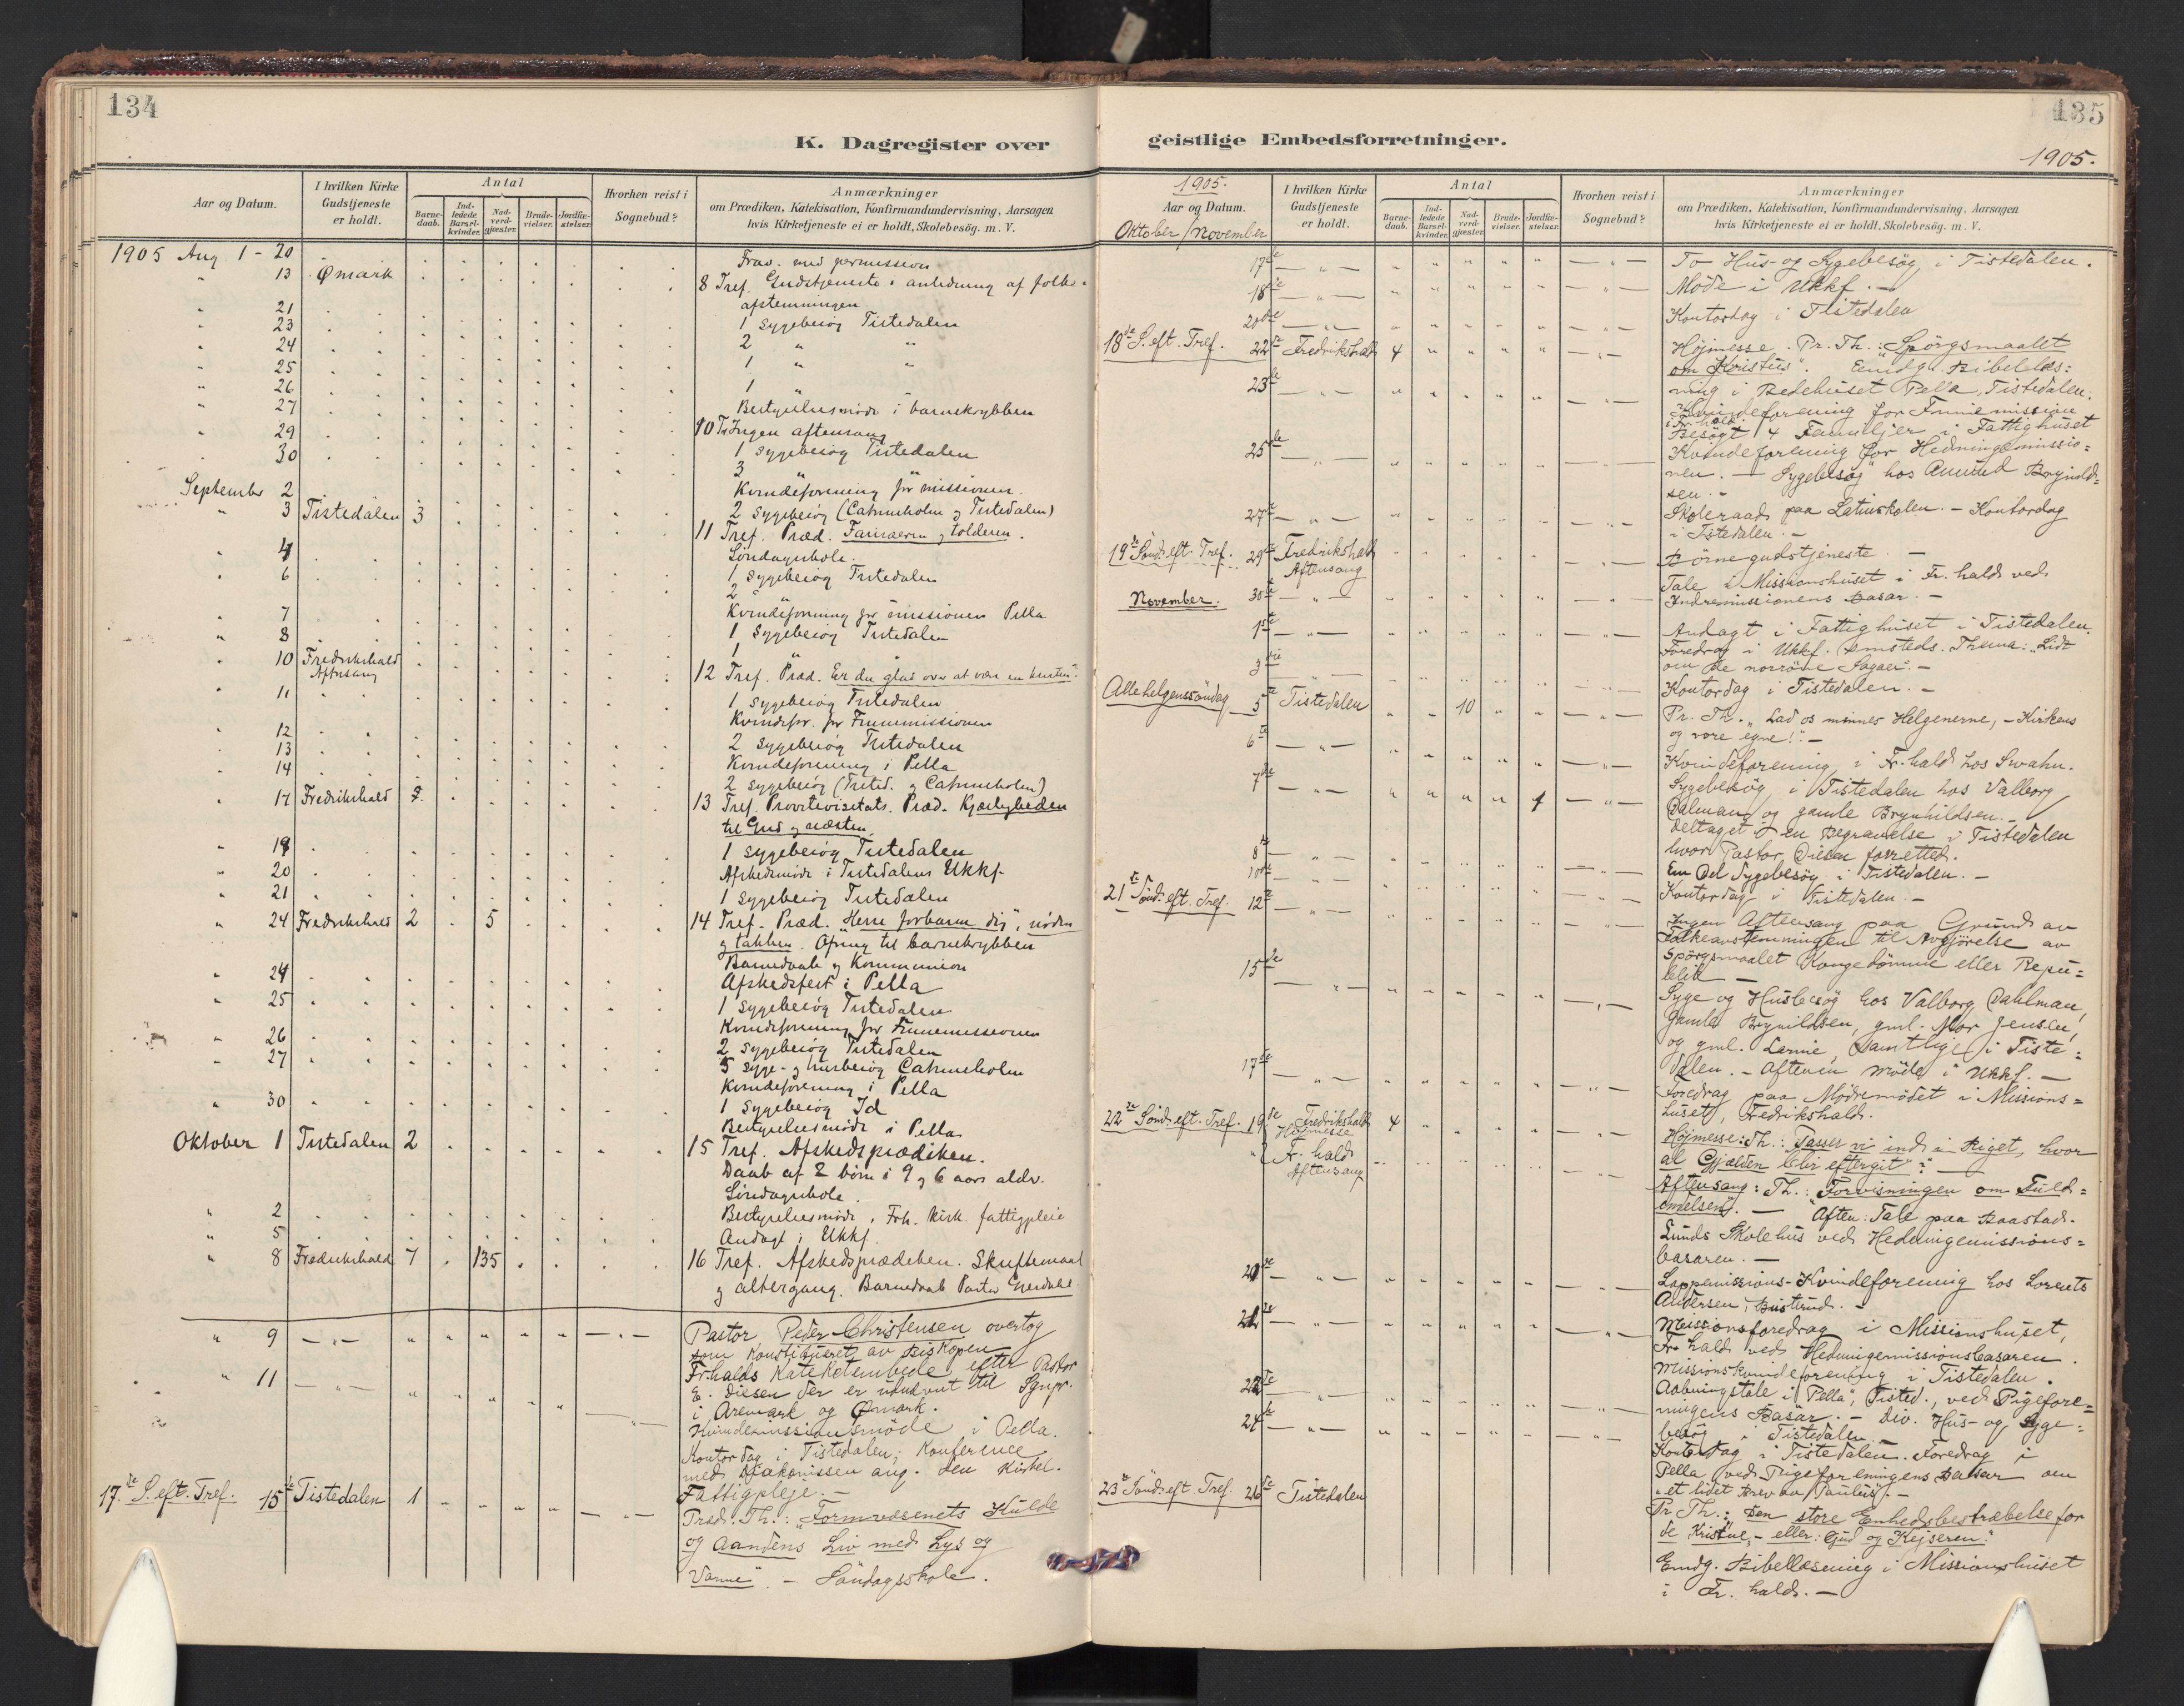 134
K. Dagregister over
Aar og Datum.
I hvilken Kirke
Gudstjeneste
er holdt.
Antal
Barne-
daab.
Ind-
ledede
Barsel-
kvinder.
Nad-
verd-
gjæster.
Brude-
vielser.
Jordfæ-
stelser.
Hvorhen reist i
Sognebud?
Anmærkninger
om Prædiken, Katekisation, Konfirmandundervisning, Aarsagen
hvis Kirketjeneste ei er holdt, Skolebesøg. m. V.
1905 Aug. 1 - 20 Frav. med permission
" 13 Ømark 8 Tref. Gudstjeneste i anledning af folke-
afstemningen
" 21 1 sygebesøg Tistedalen
" 23 2 " "
" 24 1 " "
" 25
" 26 1
" 27 Bestyrelsesmøde i barnekrybben
10 Tr Ingen aftensang
" 29 1 sygebesøg Tistedalen
" 30 3 " "
Kvindeforening for missionen.
September 2 2 sygebesøg (Catrineholm og Tistedalen)
" 3 Tistedalen 3 11 Tref. Præd. Farisæeren og tolderen.
Søndagsskole.
" 4 1 sygebesøg Tistedalen
" 6 2 " "
Kvindeforening for missionen Pella
" 7 1 sygebesøg Tistedalen
" 8 1 " "
" 10 Fredrikshald 12 Tref. Præd. Er du glad over at være en kristen?
Aftensang
" 11 1 sygebesøg Tistedalen
Kvindefor. for Finnemissionen
" 12 2 sygebesøg Tistedalen
" 13 Kvindeforening i Pella
" 14 2 sygebesøg (Tisted. og Catrineholm)
" 17 Fredrikshald 13 Tref. Provstevisitats. Præd. Kjærligheden
til Gud og næsten.
" 19 1 sygebesøg Tistedalen
" 20 Afskedsmøde i Tistedalens Ukkf.
" 21 1 sygebesøg Tistedalen
" 24 Fredrikshald 2 5 14 Tref. Præd. "Herre forbarm dig", nøden
og takken. Ofring til barnekrybben
Barnedaab og Kommunion
" 24 Afskedsfest i Pella
" 25 1 sygebesøg Tistedalen
Kvindeforening for Finnemissionen
" 26 2 sygebesøg Tistedalen
" 27 5 syge- og husbesøg Catrineholm
Kvindeforening i Pella
" 30 1 sygebesøg Id
Bestyrelsesmøde i Pella
Oktober 1 Tistedalen 2 15 Tref. Afskedsprædiken.
Daab af 2 børn i 9 og 6 aars alder.
Søndagsskole.
" 2 Bestyrelsesmøde, Frh. kirk. fattigpleie
" 5 Andagt i Ukkf.
" 8 Fredrikshald 7 135 16 Tref. Afskedsprædiken. Skriftemaal
og altergang. Barnedaab Pastor
" 9 Pastor Peder Christensen overtog
som Konstitueret av Biskopen
Fr.halds Kateketembede efter Pastor
" 11 E. Diesen der er utnævnt til Sgnpr.
i Aremark og Ømark.
Kvindemissionsmöde i Pella.
Kontordag i Tistedalen; Konference
med Diakonissen ang. den Kirkel.
Fattigpleje. -
17de S. eft. Tref. 15de Tistedalen 1 Præd. Th.: "Formvæsenets Kulde
og Aandens Liv med Lys og
Varme". - Söndagsskole.
135
geistlige Embedsforretninger.
1905.
1905.
Aar og Datum.
Oktober/November
I hvilken Kirke
Gudstjeneste
er holdt.
Antal
Barne-
daab.
Ind-
ledede
Barsel-
kvinder.
Nad-
verd-
gjæster.
Brude-
vielser.
Jordfæ-
stelser.
Hvorhen reist i
Sognebud?
Anmærkninger
om Prædiken, Katekisation, Konfirmandundervisning, Aarsagen
hvis Kirketjeneste ei er holdt, Skolebesøg. m. V.
17de To Hus- og Sygebesög i Tistedalen.
18de Möde i Ukkf. -
20de Kontordag i Tistedalen
18de S. eft. Tref. 22de Fredrikshald 4 Höjmesse. Pr. Th.: "Spörgsmaalet
om Kristus". Emdg. Bibellæs:
23de ning i Bedehuset Pella, Tistedalen.
Kvindeforening for Finnemission
i Fr.hald.
Besögt 4 Familjer i Fattighuset
25de Kvindeforening for Hedningemissio=
nen. - Sygebesög hos Amund Brynild=
sen. -
27de Skoleraad paa Latinskolen. - Kontordag
i Tistedalen. -
19de Sönd. eft. Tref. 29de Fredrikshald Börnegudstjeneste. -
Aftensang
Tale i Missionshuset i Fr. hald ved
30te Indremissionens Basar. -
November. 1ste Andagt i Fattighuset i Tistedalen.
Foredrag i Ukkf. sammesteds. Thema: "Lidt
3die om de norröne Sagaer". -
Kontordag i Tistedalen. -
Allehelgenssöndag 5te Tistedalen 10 Pr. Th. "Lad os mindes Helgenerne, - Kirkens
og vore egne!". -
6te Kvindeforening i Fr. hald hos Svahn.
7de 1 Sygebesög i Tistedalen hos Valborg
Dalman og gamle Brynhildsen. -
Deltaget i en Begravelse i Tistedalen
hvor Pastor Diesen forrettet.
8de En Del Sygebesög i Tistedalen. -
10de Kontordag i Tistedalen. -
21de Sönd. eft. Tref. 12te Ingen Aftensang paa Grund av
Folkeavstemningen til Avgjörelse av
Spörgsmaalet Kongedömme eller Repu=
blik -
15de Syge og Husbesög hos Valborg Dahlman,
gamle Brynildsen, gml. Mor Jensen,
og gml. Larnie, samtlige i Tiste=
dalen. - Aftenen möde i Ukkf. -
17de Foredrag paa Mödremödet i Missions=
huset, Fredrikshald.
22de Sönd. eft. Tref. 19de Fredrikshald 4 Höjmesse: Th.: Passer vi ind i Riget, hvor
Höjmesse
al Gjælden blir eftergit"? -
" Fr. hald
Aftensang
Aftensang: Th.: "Forvisningen om Fuld=
endelsen". - Aften: Tale paa Baastad-
Lunds Skolehus ved Hedningemissions=
basaren. -
20de Lappemissions-Kvindeforening hos Lorents
Andersen, Busterud. -
21de Missionsforedrag i Missionshuset,
Fr. hald ved Hedningemissionsbasaren.
Missionskvindeforening i Tistedalen.
22de Aabningstale i "Pella", Tisted., ved Pigefore=
ningens Basar. - Div. Hus- og Syge=
besög i Tistedalen. -
24de Kontordag i Tistedalen. Foredrag i
Pella ved Pigeforeningens Basar om
"et lidet Brev av Paulus". -
23de Sönd. eft. Tref. 26de Tistedalen Pr. Th.: "Den store Enhedsbestræbelse for
de Kristne, - eller: Gud og Kejseren."
Emdg. Bibellæsening i Missionshuset
i Fr. hald. -